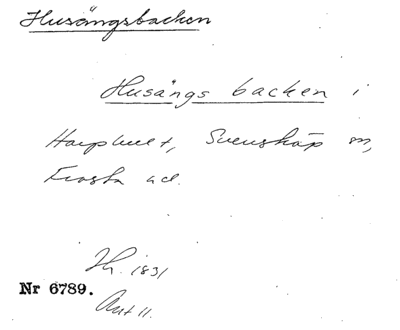 Husängsbacken
Husängs backen i
Harphult, Svensköp sn,
Frosta hd.
Hr. 1831
Nr 6789.
Akt 11.